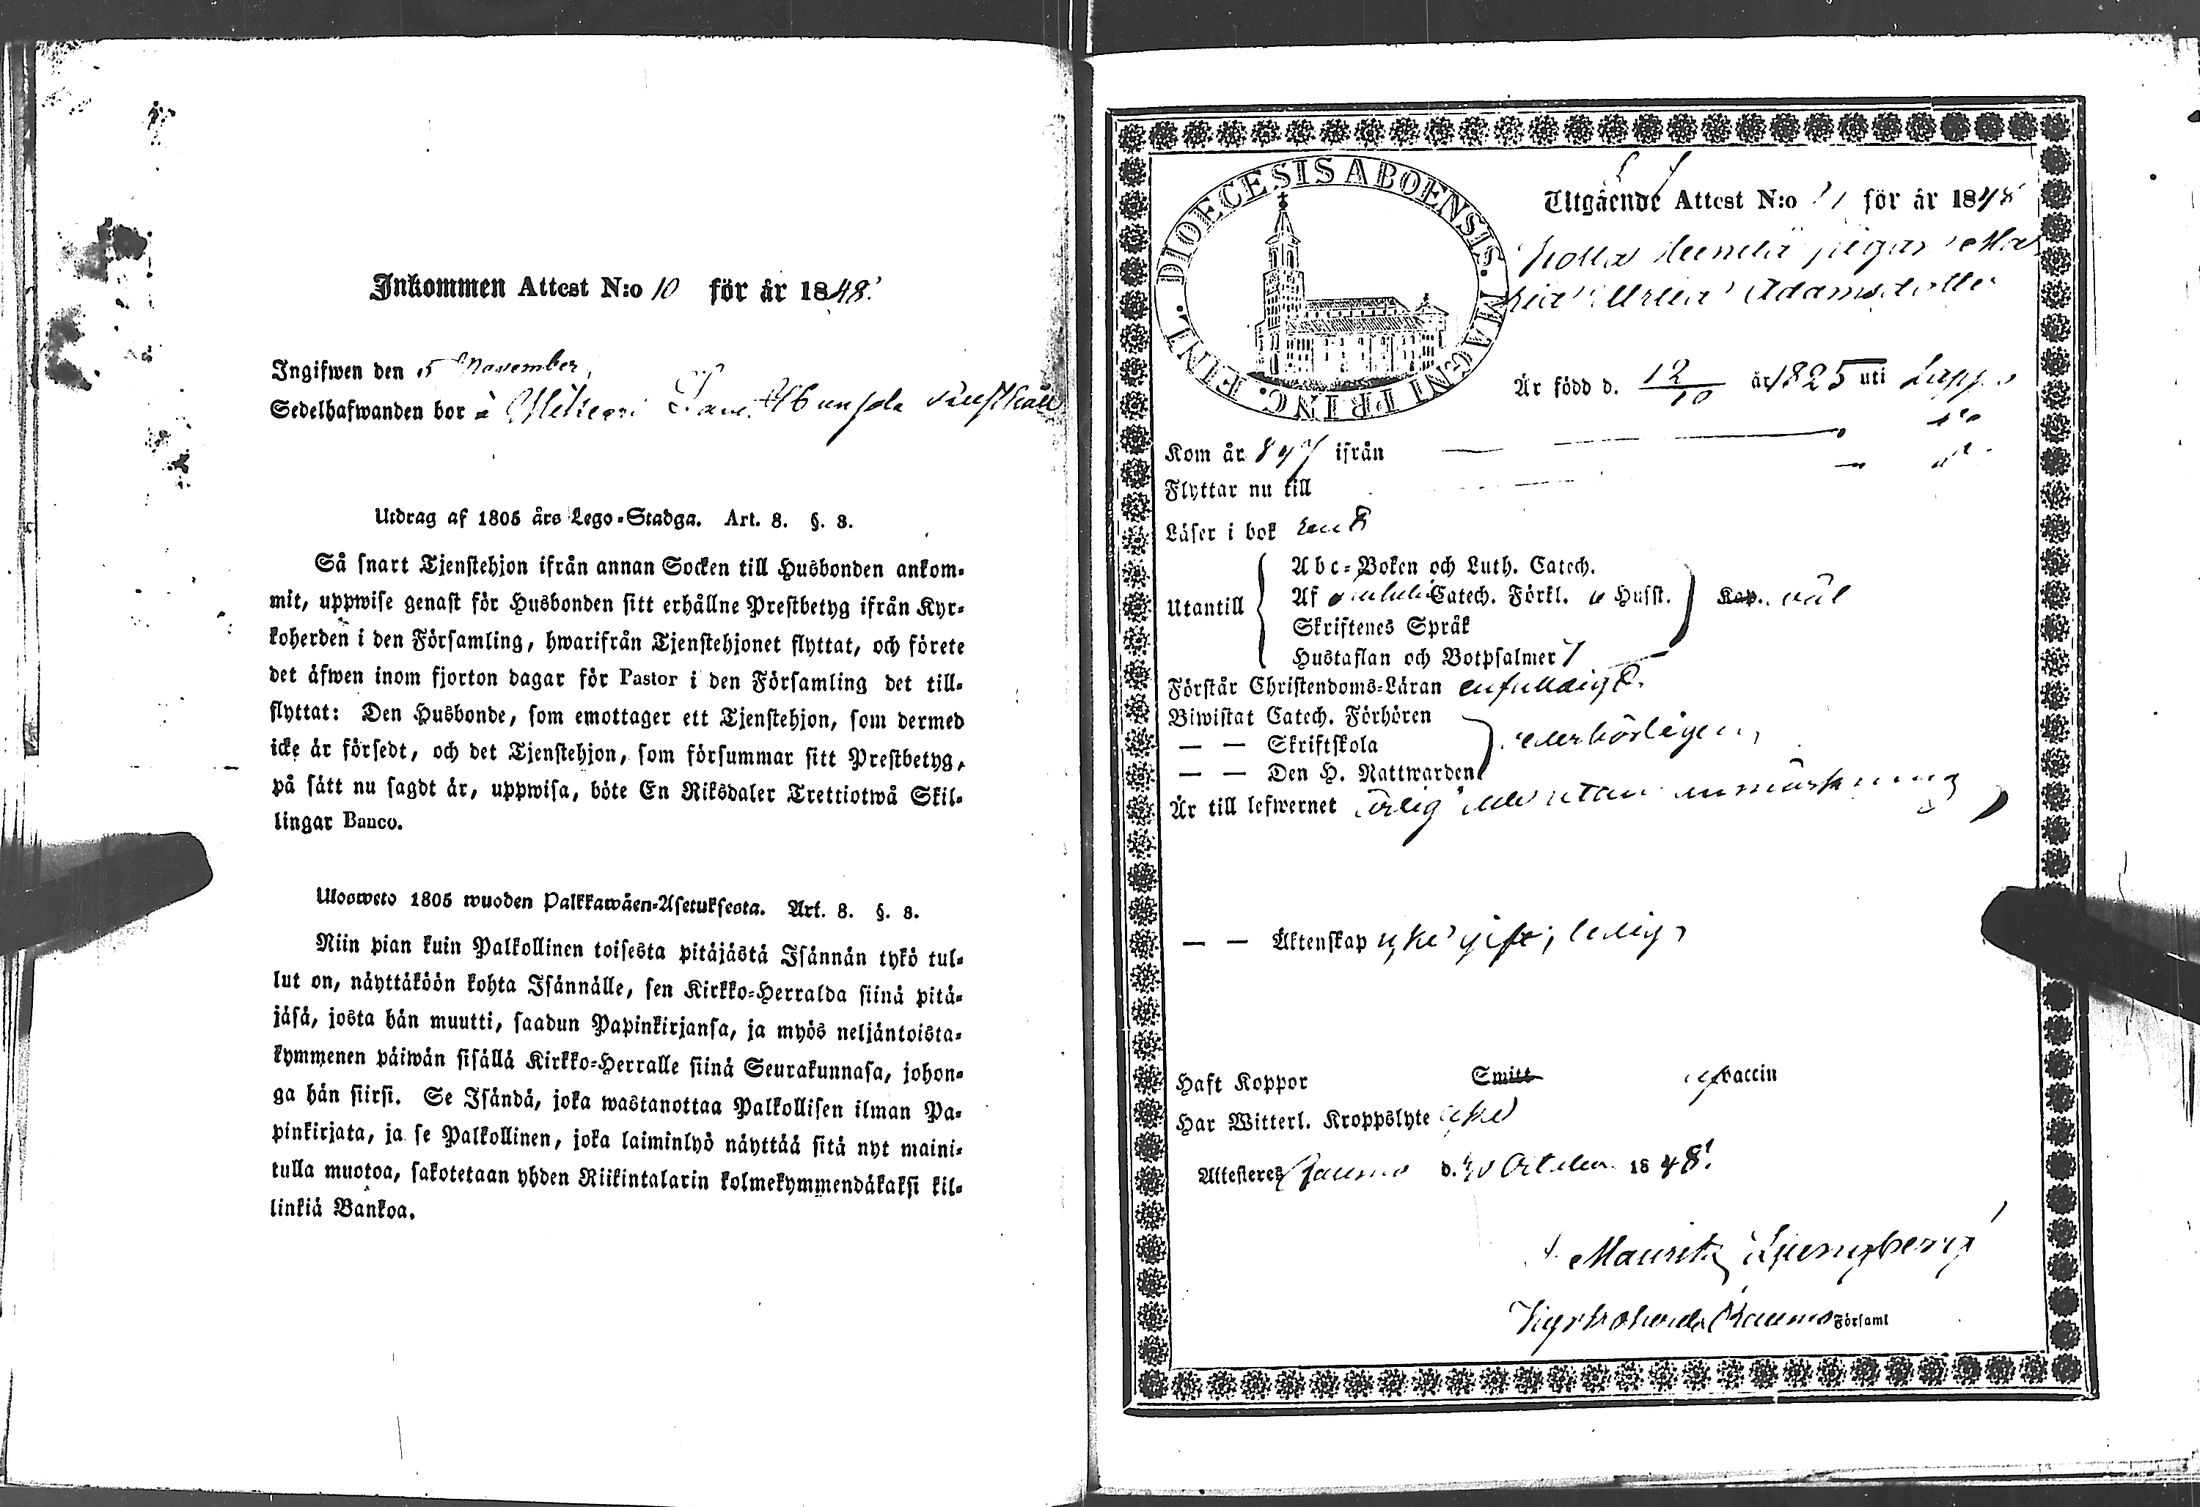 Inkommen Attest N:o 10 för år 1848.
Ingifwen den 5 November
Sedelhafwanden bor å
Utdrag af 1805 års Lego-Stadga. Art. 8. §. 8.
Så snart Tjenstehjon ifrån annan Socken till Husbonden ankom-
mit, uppwise genast för Husbonden sitt erhållne Prestbetyg ifrån Kyr-
koherden i den Församling, hwarifrån Tjenstehjonet flyttat, och förete
det äfwen inom fjorton dagar för Pastor i den Församling det till-
flyttat: Den Husbonde, som emottager ett Tjenstehjon, som dermed
icke är försedt, och det Tjenstehjon, som försummar sitt Prestbetyg,
på sätt nu sagdt är, uppwisa, böte En Riksdaler Trettiotwå Skil-
lingar Banco.
Ulosweto 1805 wuoden Palkkawäen-Asetuksesta. Art. 8. §. 8.
Niin pian kuin Palkollinen toisesta pitäjästä Isännän tykö tul-
lut on, näyttäköön kohta Isännälle, sen Kirkko-Herralda siinä pitä-
jäsä, josta hän muutti, saadun Papinkirjansa, ja myös neljäntoista-
kymmenen päiwän sisällä Kirkko-Herralle siinä Seurakunnasa, johon-
ga hän siirsi. Se Isändä, joka wastanottaa Palkollisen ilman Pa-
pinkirjata, ja se Palkollinen, joka laiminlyö näyttää sitä nyt maini-
tulla muotoa, sakotetaan yhden Riikintalarin kolmekymmendäkaksi kil-
linkiä Bankoa.
DIOECESIS ABOENSIS. MAGNI PRINC. FINL.
Utgående Attest N:o för år 1848
pigan
Adamsdotter
Är född d. 12/10 år 1825 uti Lappo
Kom år 847 ifrån
Flyttar nu till
Läser i bok
Utantill
Abc-Boken och Luth. Catech.
Af Catech. Förkl. o Husst.
Skriftenes Språk
Hustaflan och Botpsalmer
Kap. väl
Förstår Christendoms-Läran enfaldigt.
Biwistat Catech. Förhören
— — Skriftskola
— — Den H. Nattwarden
wederbörligen,
Är till lefwernet ärlig utan anmärkning
— — Äktenskap icke gift, ledig,
Haft Koppor Smitt vaccin
Har Witterl. Kroppslyte icke
Attesteres Raumo d. October 1848.
Mauritz Ljungberg
Kyrkoherde Raumo Församl